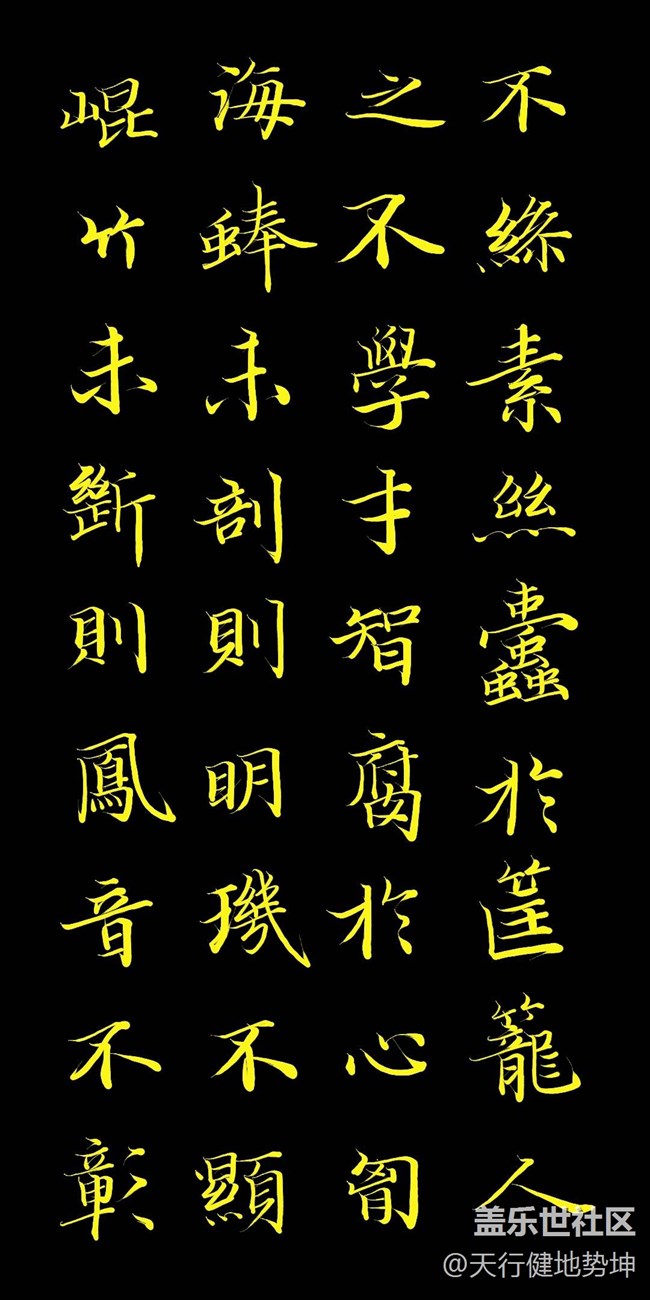 不絲素丝蠹於筐籠人
之不學才智腐於心胷
海蜯未剖則明璣不顯
崐竹未斷則鳳音不彰
盖乐世社区
@天行健地势坤